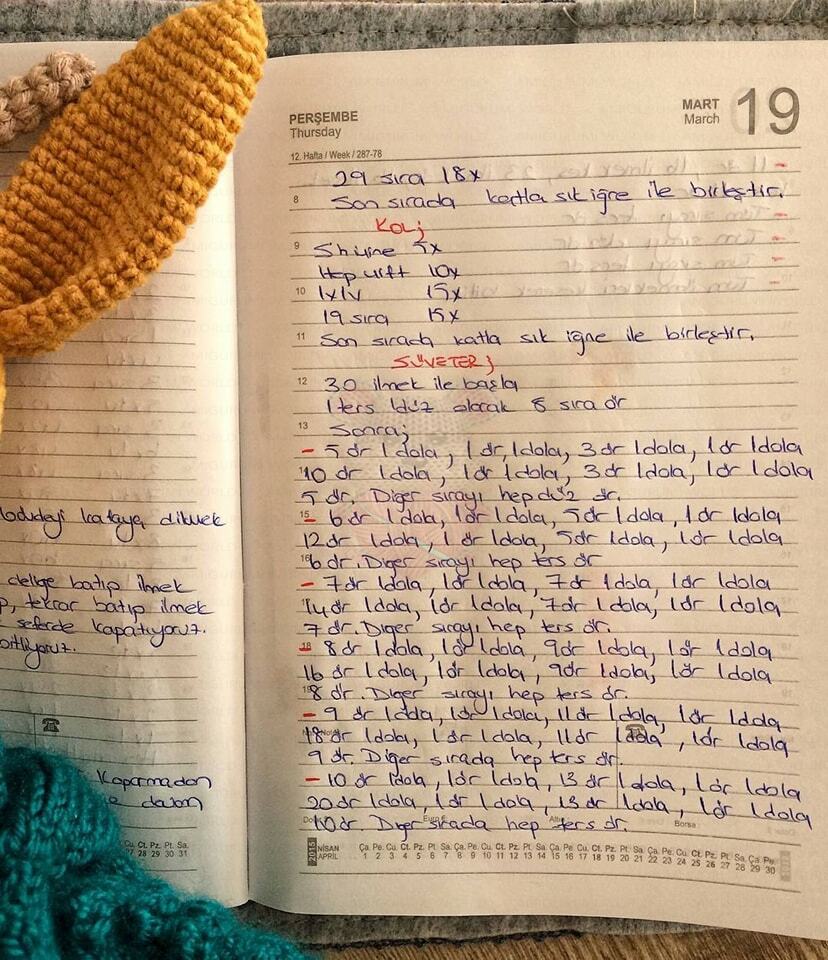 PERŞEMBE
Thursday
MART
March
19
12. Hafta / Week / 287-78
29 sıra 18x
8 Son sırada katla sık iğne ile birleştir.
KOL;
9 Sihirine 5x
Hep üift 10x
10 1x1v 15x
19 sıra 15x
11 Son sırada katla sık iğne ile birleştir.
SÜVETER;
12 30 ilmek ile başla
1 ters 1 düz olarak 8 sıra ör
13 Sonra;
- 5 ör 1 dola, 1 ör, 1 dola, 3 ör 1 dola, 1 ör 1 dola
10 ör 1 dola, 1 ör 1 dola, 3 ör 1 dola, 1 ör 1 dola
5 ör. Diğer sırayı hep düz ör.
15 - 6 ör 1 dola, 1 ör 1 dola, 5 ör 1 dola, 1 ör 1 dola
12 ör 1 dola, 1 ör 1 dola, 5 ör 1 dola, 1 ör 1 dola
16 6 ör. Diğer sırayı hep ters ör
- 7 ör 1 dola, 1 ör 1 dola, 7 ör 1 dola, 1 ör 1 dola
14 ör 1 dola, 1 ör 1 dola, 7 ör 1 dola, 1 ör 1 dola
7 ör. Diğer sırayı hep ters ör.
18 - 8 ör 1 dola, 1 ör 1 dola, 9 ör 1 dola, 1 ör 1 dola
16 ör 1 dola, 1 ör 1 dola, 9 ör 1 dola, 1 ör 1 dola
8 ör. Diğer sırayı hep ters ör.
- 9 ör 1 dola, 1 ör 1 dola, 11 ör 1 dola, 1 ör 1 dola
18 ör 1 dola, 1 ör 1 dola, 11 ör 1 dola, 1 ör 1 dola
9 ör. Diğer sırada hep ters ör.
- 10 ör 1 dola, 1 ör 1 dola, 13 ör 1 dola, 1 ör 1 dola
20 ör 1 dola, 1 ör 1 dola, 13 ör 1 dola, 1 ör 1 dola
10 ör. Diğer sırada hep ters ör.
Borsa
2015 NİSAN APRIL
Ça. Pe. Cu. Ct. Pz. Pt. Sa. Ça. Pe. Cu. Ct. Pz. Pt. Sa. Ça. Pe. Cu. Ct. Pz. Pt. Sa. Ça. Pe. Cu. Ct. Pz. Pt. Sa. Ça. Pe.
1 2 3 4 5 6 7 8 9 10 11 12 13 14 15 16 17 18 19 20 21 22 23 24 25 26 27 28 29 30
kafaya dikmek
deliğe batıp ilmek
tekrar batıp ilmek
seferde kapatıyoruz.
Koparmadan
Cu. Ct. Pz. Pt. Sa.
27 28 29 30 31